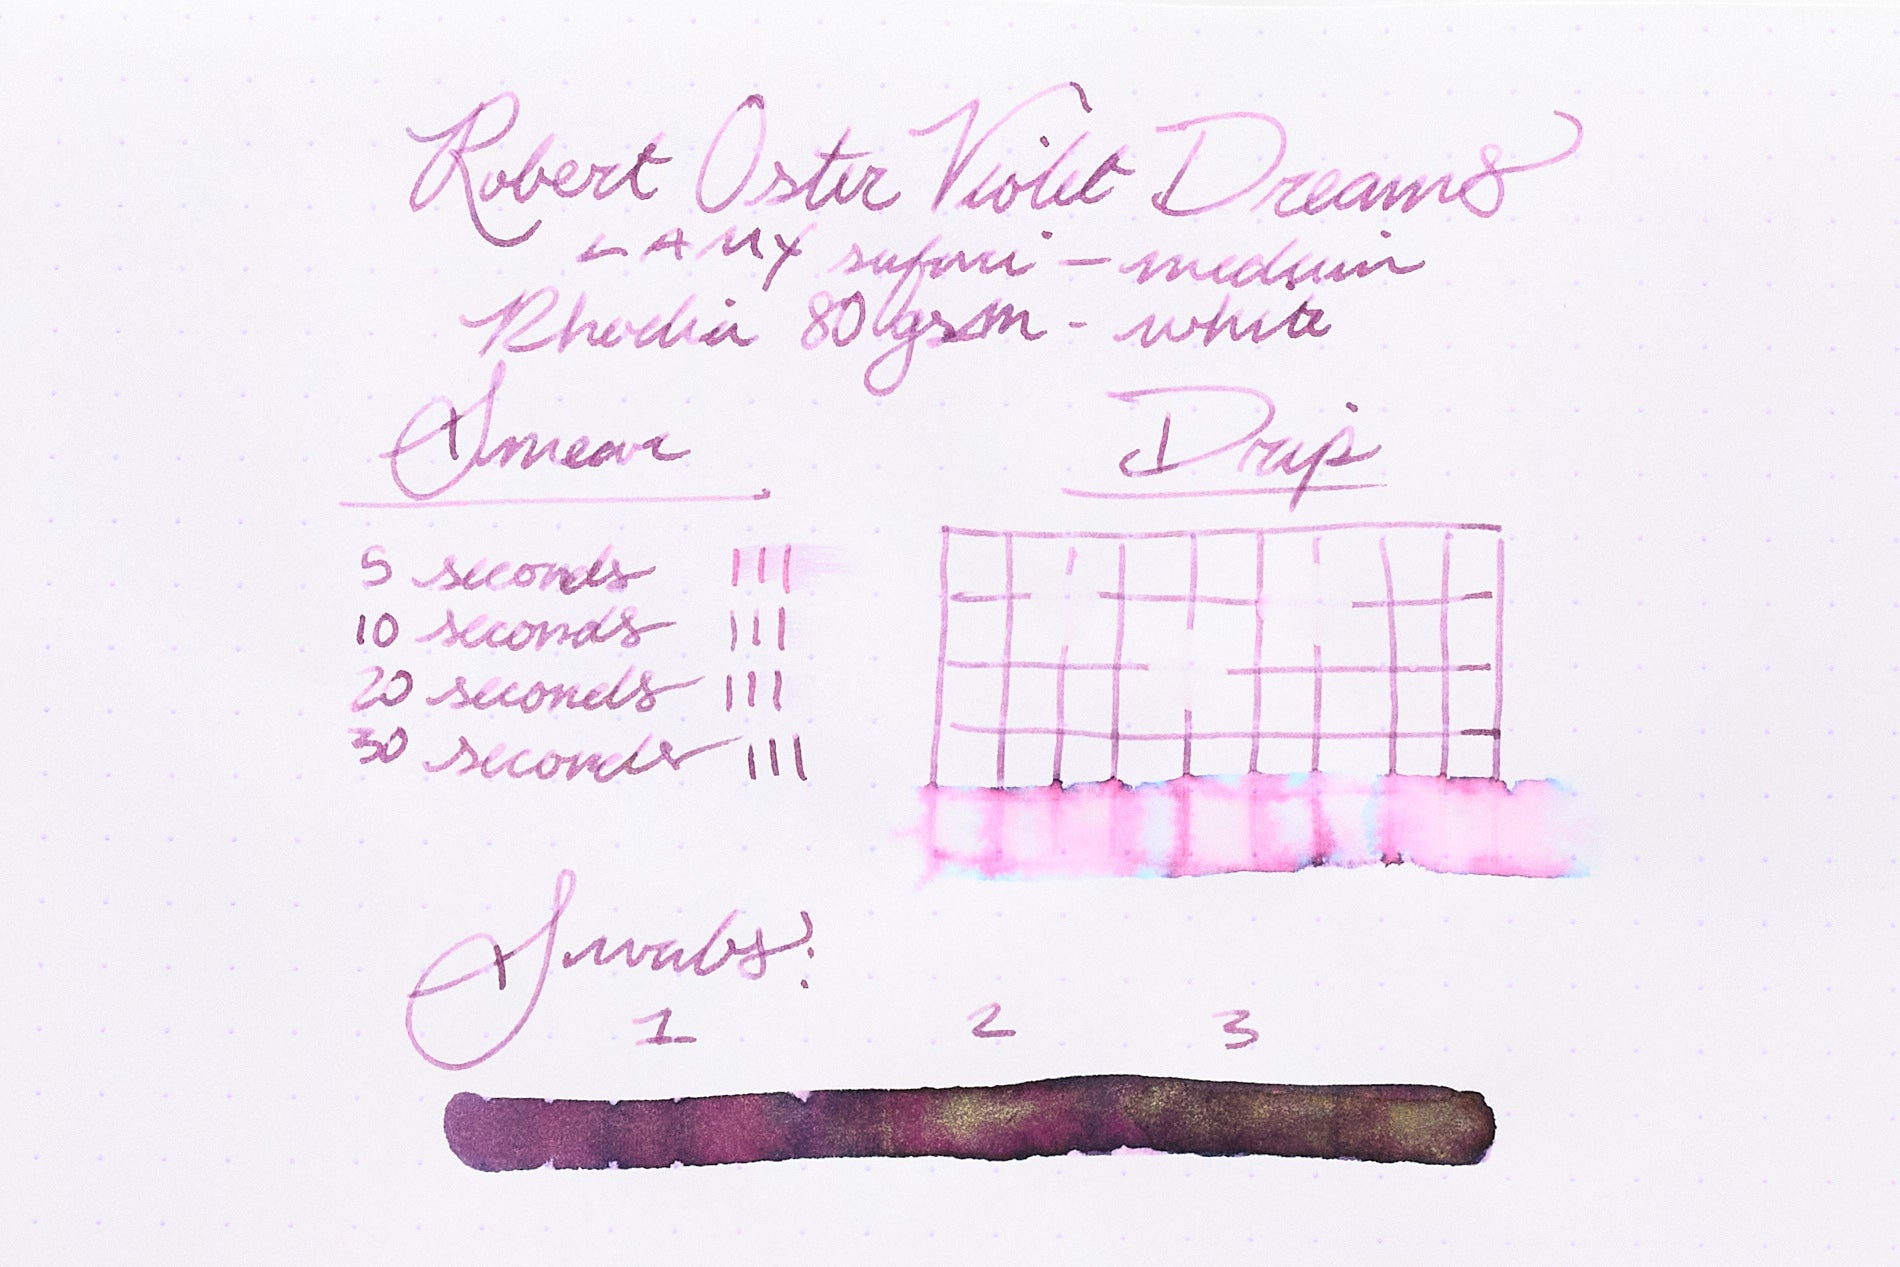 Robert Oster Violet Dreams
LAMY safari - medium
Rhodia 80 gsm - white
Smear
Drip
5 seconds
10 seconds
20 seconds
30 seconds
Swabs:
1 2 3